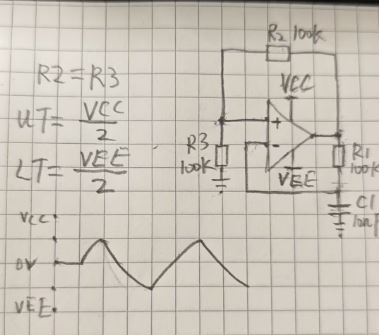 R2 100k
VCC
R2=R3
UT= VCC/2
+
-
R3
100k
VEE
R1
100k
LT= VEE/2
C1
10nF
VCC
0V
VEE